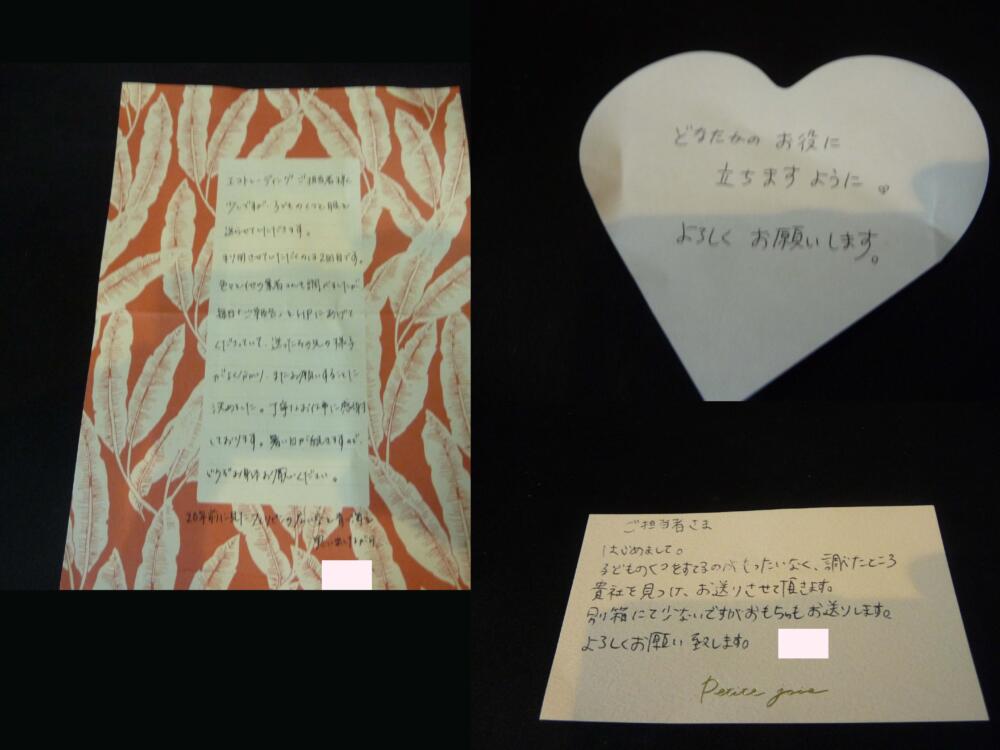 エコトレーディングご担当者様へ
少しですが、子どものくつと服を
送らせていただきます。
利用させていただくのは2回目です。
色々と他の業者さんも調べましたが
毎日「ご報告」をHPにあげて
くださっていて、送ったその先の様子
がよく分かり、またお願いすることに
決めました。丁寧なお仕事に感謝
しております。暑い日が続きますので、
どうぞお身体お厭いください。
20年前に見たフィリピンの
思い出しながら
どなたかの お役に
立ちますように。
よろしく お願いします。
ご担当者さま
はじめまして。
子どものくつをすてるのがもったいなく、調べたところ
貴社を見つけ、お送りさせて頂きます。
別箱にて少ないですがおもちゃもお送りします。
よろしくお願い致します。
Petite joie